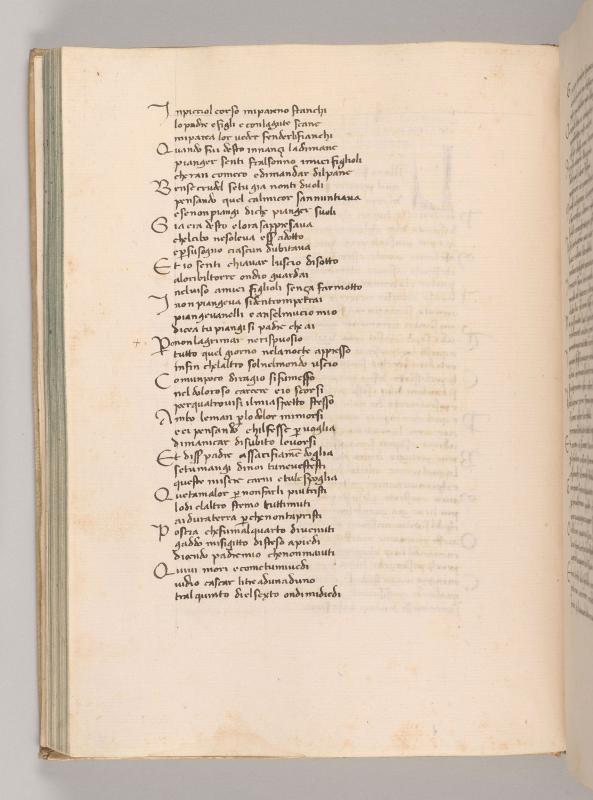 In picciol corso mi pareno stanchi
lo padre e figli e con lagute scane
mi parea lor veder fender li fianchi
Quando fui desto innanzi la dimane
pianger senti fral sonno i miei figlioli
cheran comeco e dimandar di pane
Bense crudel se tu gia non ti duoli
pensando quel cal mio cor sannuntiava
e se non piangi di che pianger suoli
Gia era desto e lora sappresava
chel cibo ne soleva ess adotto
e p suo sogno ciascun dubitava
Et io senti chiavar luscio disotto
aloribil torre ondio guardai
nel viso amiei figlioli senza far motto
I non piangeva si dentro mpetrai
piangevan elli e anselmucio mio
dicea tu piangi si padre che ai
Po non lagrimar ne rispuosio
tutto quel giorno ne la nocte appresso
infin chelaltro sol nel mondo uscio
Com un poco di ragio si fu messo
nel doloroso carcere e io scorsi
per quatro visi il mi aspetto stesso
Ambo le man p lo dolor mi morsi
e ei pensando chil fesse p voglia
di manicar di subito levorsi
Et diss padre assai ci fia me doglia
se tu mangi di noi tu ne vestesti
queste misere carni e tu le spoglia
Quetamalor p non farli piu tristi
lo di e laltro stemo tutti muti
ai dura terra p che non tapristi
Postia che fumal quarto di venuti
gaddo mi si gitto disteso a piedi
dicendo padre mio che non maiuti
Quivi mori e come tu mi vedi
vidio cascar li tre ad una duno
tral quinto di el sexto ondi mi diedi